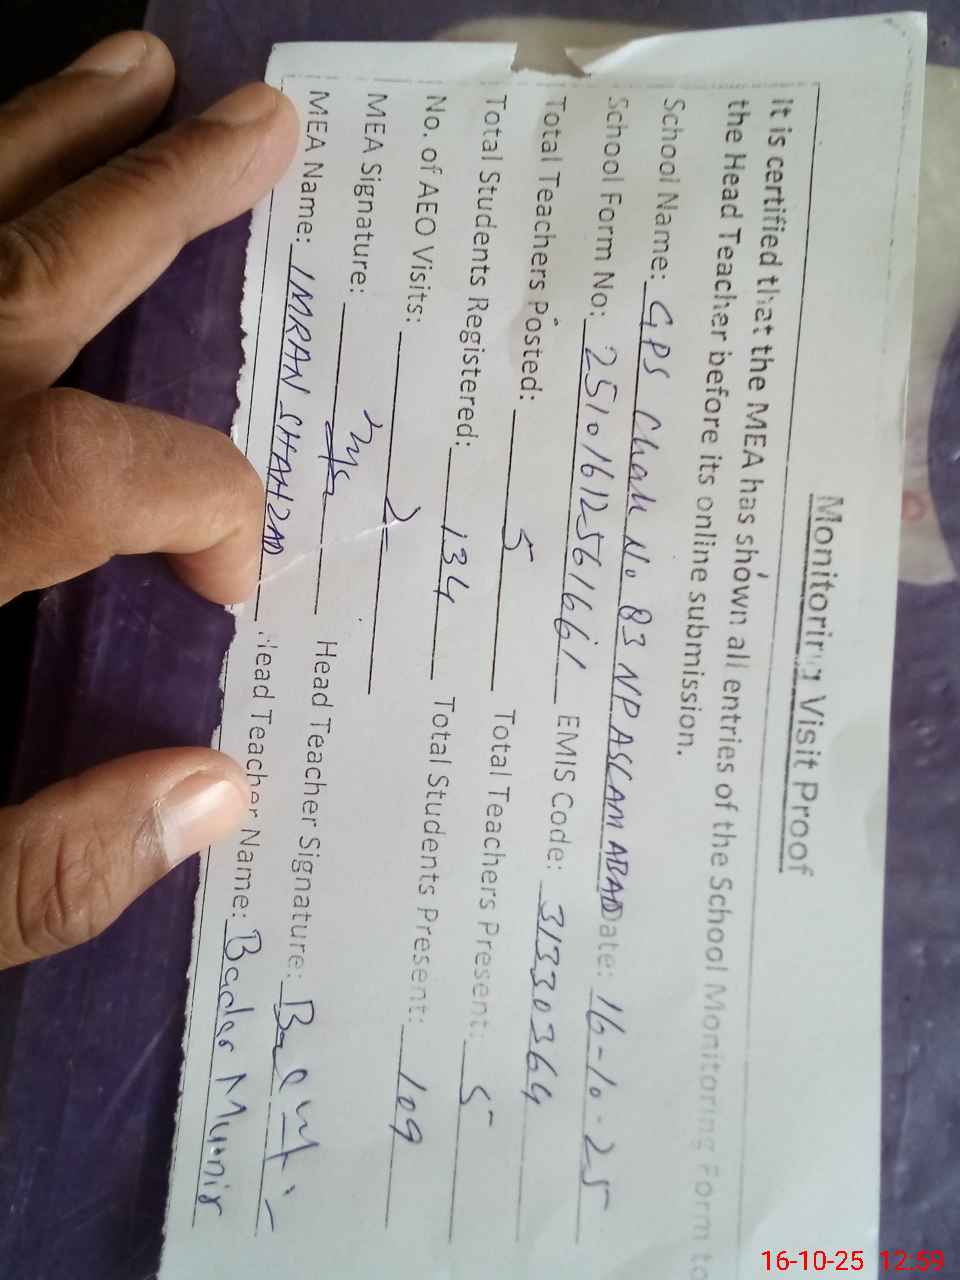 Monitoring Visit Proof
It is certified that the MEA has shown all entries of the School Monitoring Form to
the Head Teacher before its online submission.
School Name: GPS Chak No 83 NP ASLAM ABAD Date: 16-10-25
School Form No: 25101612561661 EMIS Code: 31330364
Total Teachers Posted: 5 Total Teachers Present: 5
Total Students Registered: 134 Total Students Present: 109
No. of AEO Visits: 2
MEA Signature: Head Teacher Signature:
MEA Name: IMRAN SHAHZAD Head Teacher Name: Bader Munir
16-10-25 12:59